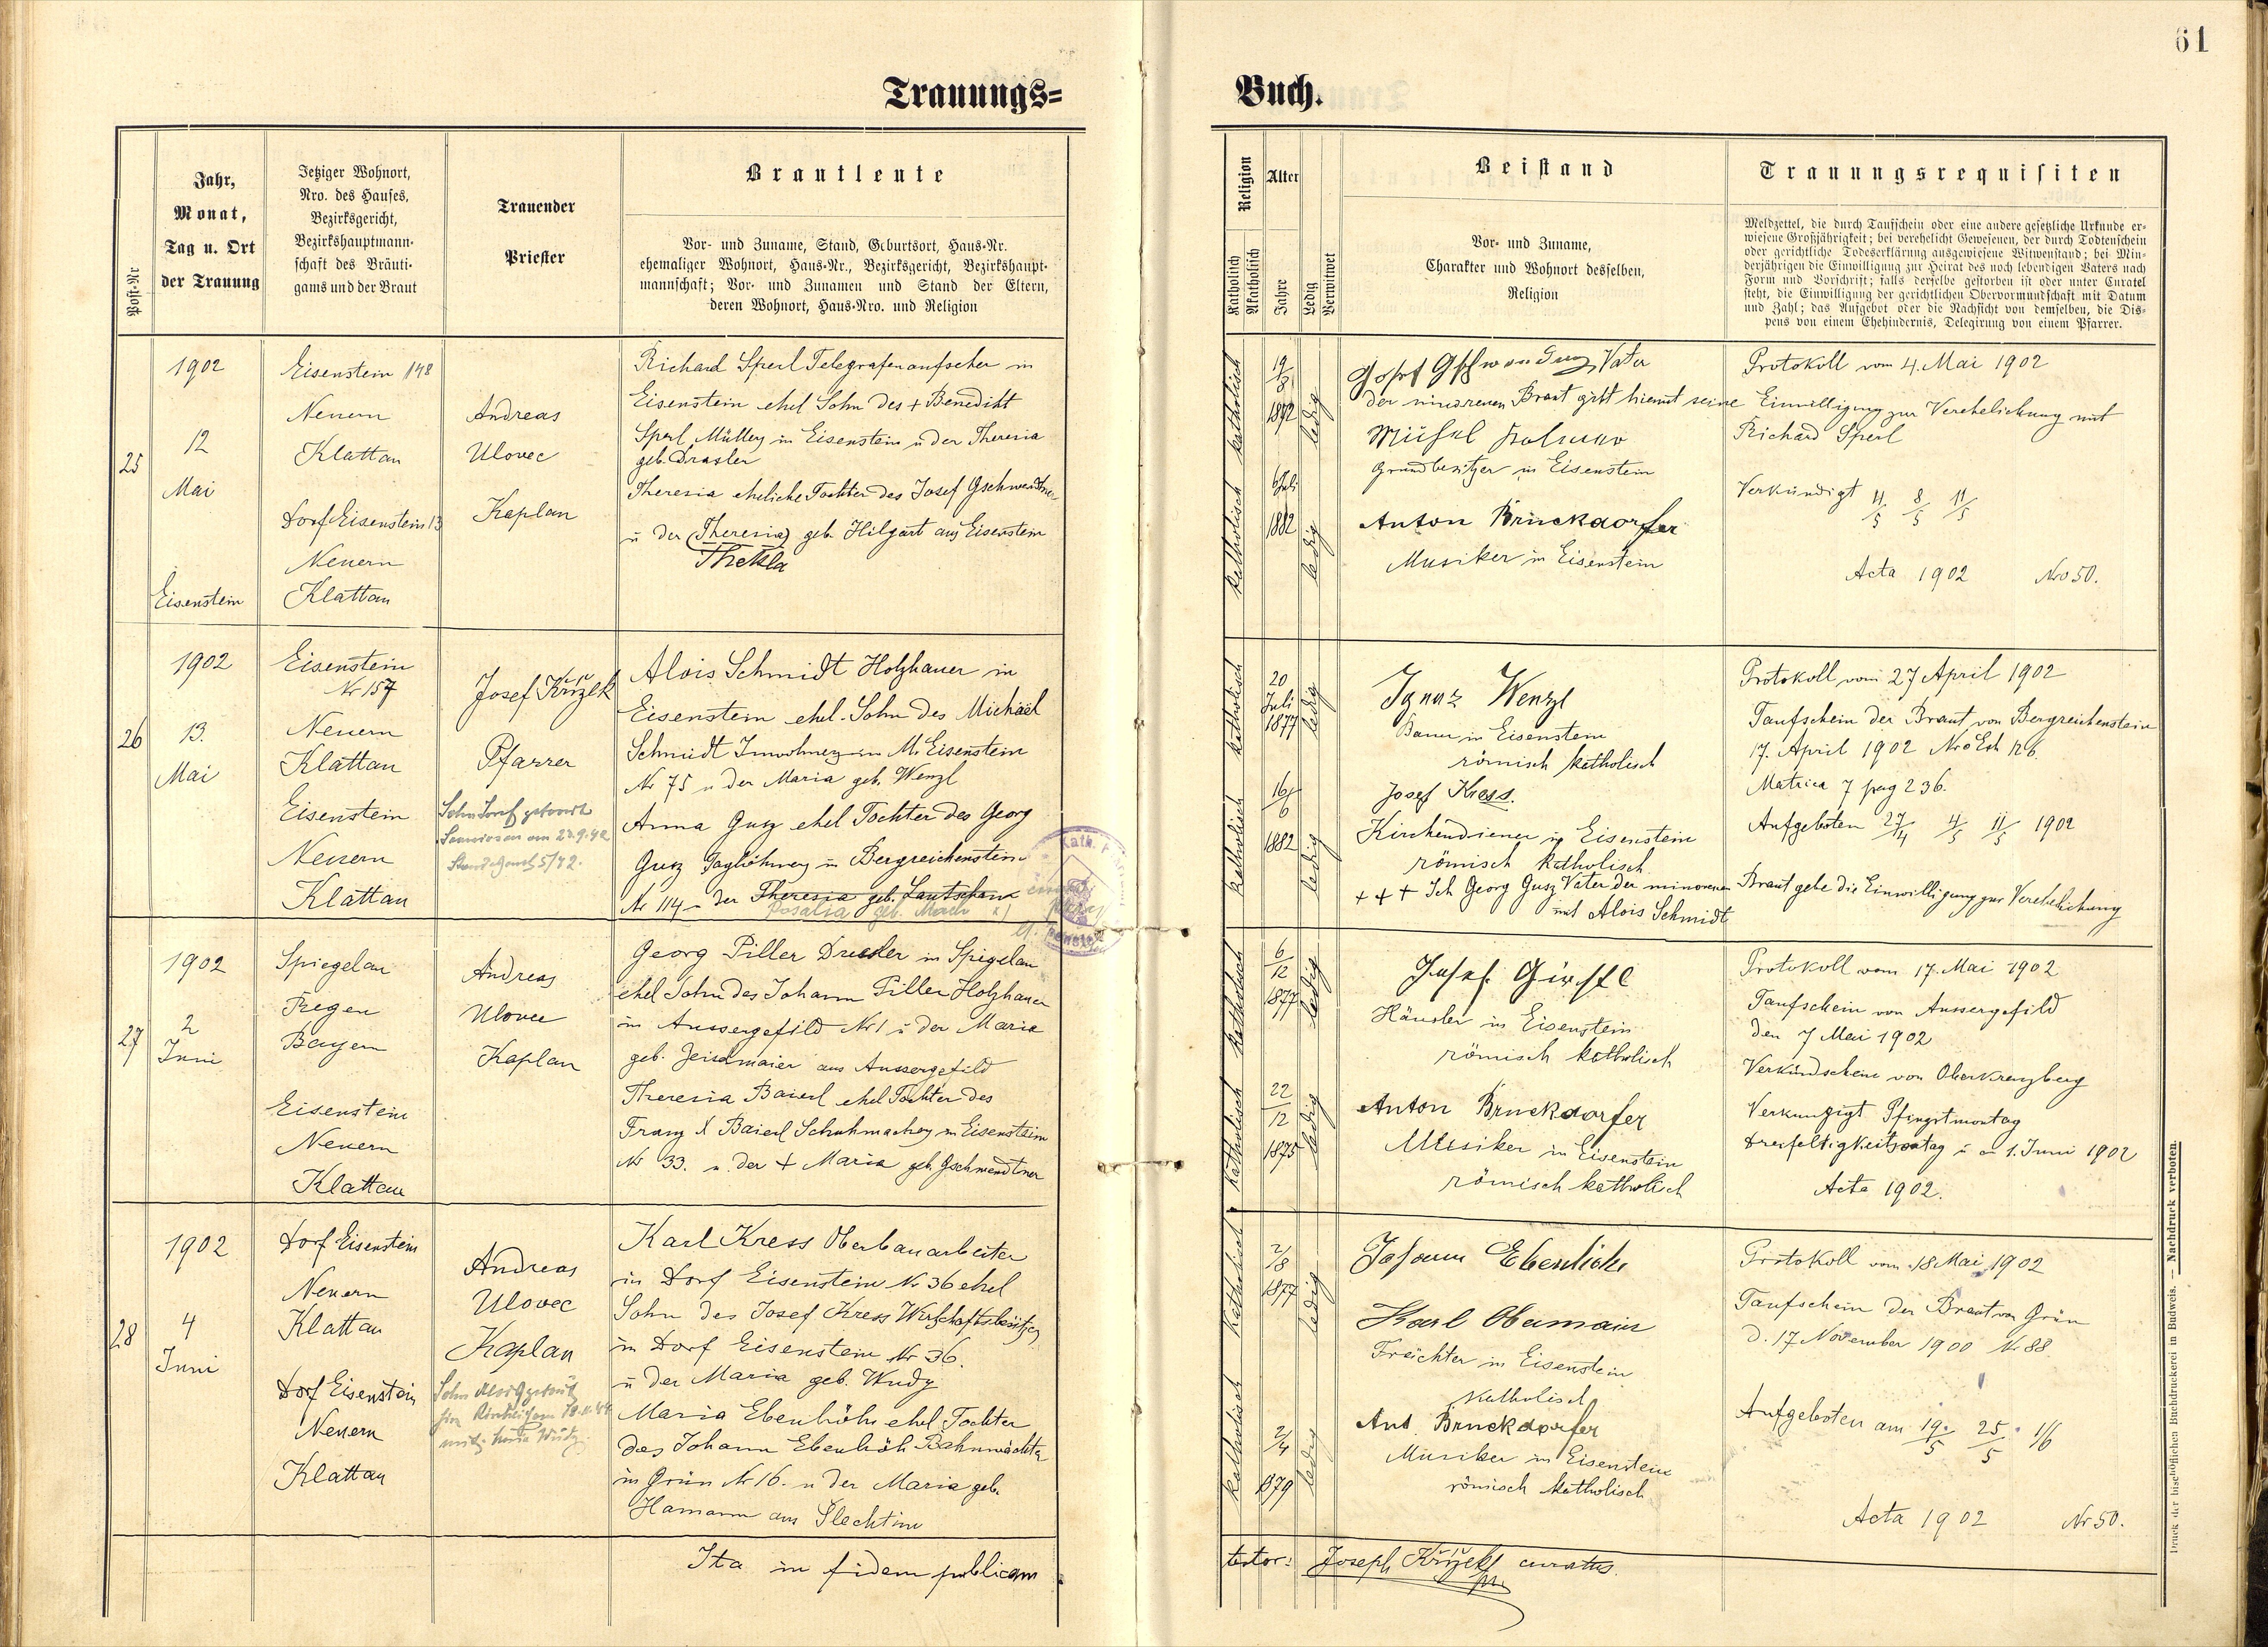 61
Trauungs=
Buch.
Post-Nr
Jahr,
Monat,
Tag u. Ort
der Trauung
Jetziger Wohnort,
Nro. des Hauses,
Bezirksgericht,
Bezirkshauptmann-
schaft des Bräuti-
gams und der Braut
Trauender
Priester
Brautleute
Vor- und Zuname, Stand, Geburtsort, Haus-Nr.
ehemaliger Wohnort, Haus-Nr., Bezirksgericht, Bezirkshaupt-
mannschaft; Vor- und Zunamen und Stand der Eltern,
deren Wohnort, Haus-Nro. und Religion
Religion
Katholisch
Akatholisch
Alter
Jahre
Ledig
Verwitwet
Beistand
Vor- und Zuname,
Charakter und Wohnort desselben,
Religion
Trauungsrequisiten
Meldzettel, die durch Taufschein oder eine andere gesetzliche Urkunde er-
wiesene Großjährigkeit; bei verehelicht Gewesenen, der durch Todtenschein
oder gerichtliche Todeserklärung ausgewiesene Witwenstand; bei Min-
derjährigen die Einwilligung zur Heirat des noch lebendigen Vaters nach
Form und Vorschrift; falls derselbe gestorben ist oder unter Curatel
steht, die Einwilligung der gerichtlichen Obervormundschaft mit Datum
und Zahl; das Aufgebot oder die Nachsicht von demselben, die Dis-
pens von einem Ehehindernis, Delegirung von einem Pfarrer.
25
1902
12
Mai
Eisenstein
Eisenstein 148
Neuern
Klattau
Dorf Eisenstein 13
Neuern
Klattau
Andreas
Ulovec
Kaplan
Richard Sperl Telegrafenaufseher in
Eisenstein ehel Sohn des + Benedikt
Sperl Müller in Eisenstein u der Theresia
geb. Drasler
Theresia eheliche Tochter des Josef Gschwendtner
u der (Theresia) geb. Hilgart aus Eisenstein
Thekla
katholisch
19/3
1872
ledig
katholisch
6 Juli
1882
ledig
Josef Gschwendtner Vater
der minorenen Braut gibt hiemit seine Einwilligung zur Verehelichung mit
Richard Sperl
Grundbesitzer in Eisenstein
Anton Bruckdorfer
Musiker in Eisenstein
Protokoll vom 4. Mai 1902
Verkündigt 4/5 8/5 11/5
Acta 1902 Nro 50.
26
1902
13.
Mai
Eisenstein
Nr 157
Neuern
Klattau
Eisenstein
Neuern
Klattau
Josef Křížek
Pfarrer
Alois Schmidt Holzhauer in
Eisenstein ehel. Sohn des Michael
Schmidt Inwohner in M. Eisenstein
Nr 75 u der Maria geb. Wenzl
Anna Gusz ehel Tochter des Georg
Gusz Taglöhner in Bergreichenstein
Nr 114 u der Theresia geb. Lautscham
Rosalia geb.
katholisch
20
Juli
1877
ledig
katholisch
16/6
1882
ledig
Ignaz Wenzl
Bauer in Eisenstein
römisch katholisch
Josef Kress.
Kirchendiener in Eisenstein
römisch katholisch
+ + + Ich Georg Gusz Vater der minorenen Braut gebe die Einwilligung zur Verehelichung
mit Alois Schmidt
Protokoll vom 27 April 1902
Taufschein der Braut von Bergreichenstein
17. April 1902
Matrica 7 pag 236.
Aufgeboten 27/4 4/5 11/5 1902
27
1902
2
Juni
Spiegelau
Regen
Bayern
Eisenstein
Neuern
Klattau
Andreas
Ulovec
Kaplan
Georg Piller Drexler in Spigelau
ehel Sohn des Johann Piller Holzhauer
in Aussergefild Nr 1 u der Maria
geb. Zeislmaier aus Aussergefild
Theresia Baierl ehel Tochter des
Franz X Baierl Schuhmacher in Eisenstein
Nr 33. u der + Maria geb. Gschwendtner
katholisch
6/12
1877
ledig
katholisch
22/12
1875
ledig
Josef
Häusler in Eisenstein
römisch katholisch
Anton Bruckdorfer
Musiker in Eisenstein
römisch katholisch
Protokoll vom 17. Mai 1902
Taufschein von Aussergefild
den 7 Mai 1902
Verkündschein von Oberkreuzberg
Verkundigt Pfingstmontag
Dreifaltigkeitsontag u am 1. Juni 1902
Acta 1902.
28
1902
4
Juni
Dorf Eisenstein
Neuern
Klattau
Dorf Eisenstein
Neuern
Klattau
Andreas
Ulovec
Kaplan
Karl Kress Oberbauarbeiter
in Dorf Eisenstein Nr 36 ehel
Sohn des Josef Kress Wirtschaftsbesitzer
in Dorf Eisenstein Nr 36.
u der Maria geb. Wudy
Maria Ebenhöh ehel Tochter
des Johann Ebenhöh Bahnwächter
in Grün Nr 16. u der Maria geb.
Hamann aus Plechtin
katholisch
2/8
1877
ledig
katholisch
2/4
1879
ledig
Johann Ebenhöh
Karl Obermaier
in Eisenstein
Katholisch
Ant. Bruckdorfer
Musiker in Eisenstein
römisch katholisch
Protokoll vom 18 Mai 1902
Taufschein der Braut von Grün
d. 17 November 1900 Nr 88
Aufgeboten am 19./5 25/5. 1/6
Acta 1902 Nr 50.
Ita in fidem publicam
testor: Joseph Křížek curatus.
Druck der bischöflichen Buchdruckerei in Budweis. — Nachdruck verboten.